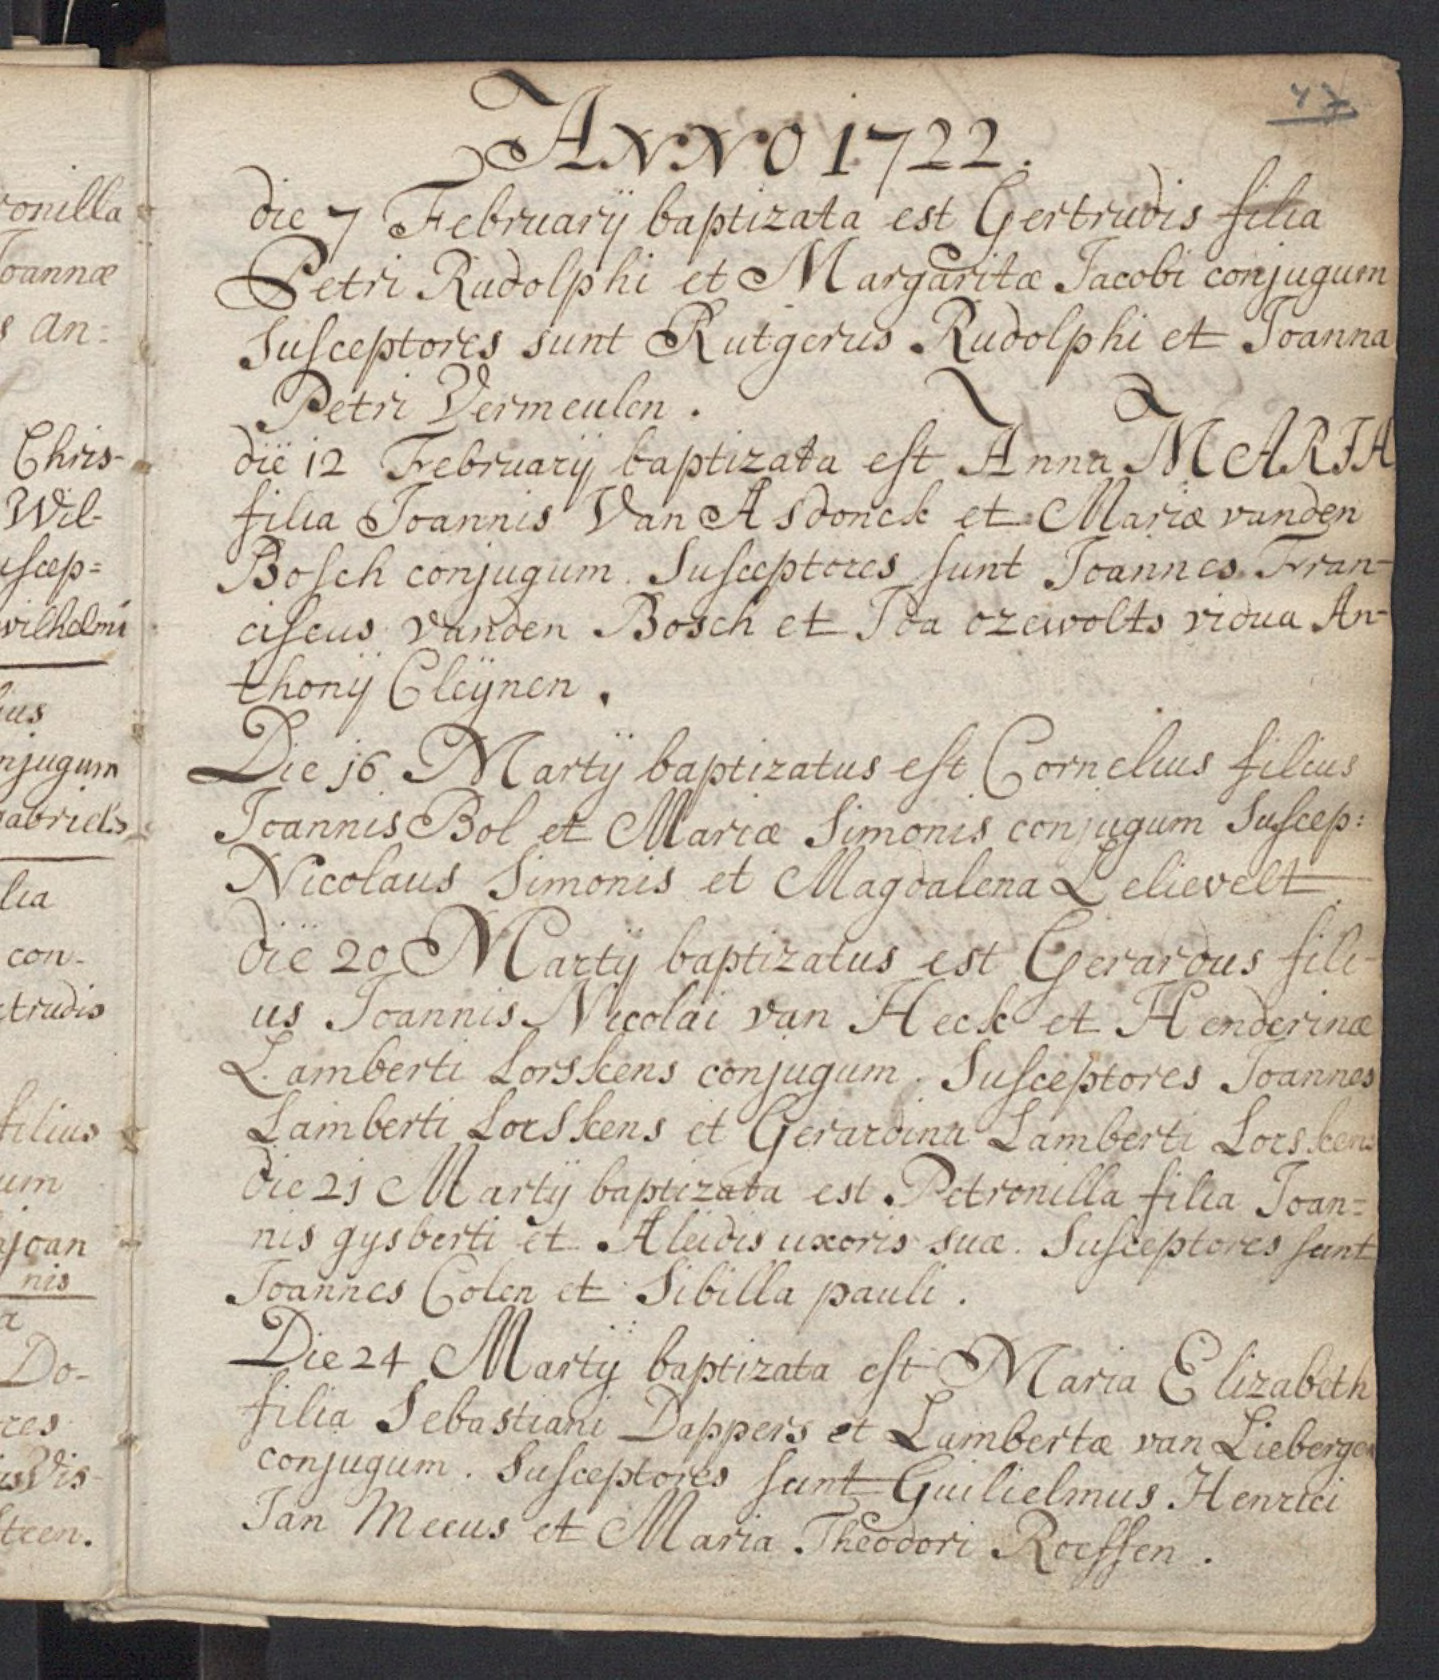 ronilla
Joannæ
s an:
Chris-
Wil-
uscep=
wilhelmi
lius
onjugum
Gabriels
lia
con-
rtrudis
filius
um
joan
nis
a
Do-
res
Vis-
steen.
47
ANNO 1722.
die 7 Februarÿ baptizata est Gertrudis filia
Petri Rudolphi et Margaritæ Jacobi conjugum
Susceptores sunt Rutgerus Rudolphi et Joanna
Petri Vermeulen.
die 12 Februarÿ baptizata est Anna MARIA
filia Joannis Van Asdonck et Mariæ vanden
Bosch conjugum. Susceptores sunt Joannes Fran-
ciscus vanden Bosch et Ida ozewolts vidua An-
thonÿ Cleÿnen.
Die 16 Martÿ baptizatus est Cornelius filius
Joannis Bol et Mariæ Simonis conjugum Suscep:
Nicolaus Simonis et Magdalena Lelievelt
die 20 Martÿ baptizatus est Gerardus fili-
us Joannis Nicolai van Heck et Henderinæ
Lamberti Lorskens conjugum. Susceptores Joannes
Lamberti Lorskens et Gerardina Lamberti Lorskens
die 21 Martÿ baptizata est Petronilla filia Joan=
nis gysberti et Aleidis uxoris suæ. Susceptores sunt
Joannes Colen et Sibilla pauli.
Die 24 Martÿ baptizata est Maria Elizabeth
filia Sebastiani Dappers et Lambertæ van Liebergen
conjugum. Susceptores sunt Guilielmus Henrici
Jan Meeus et Maria Theodori Roessen.